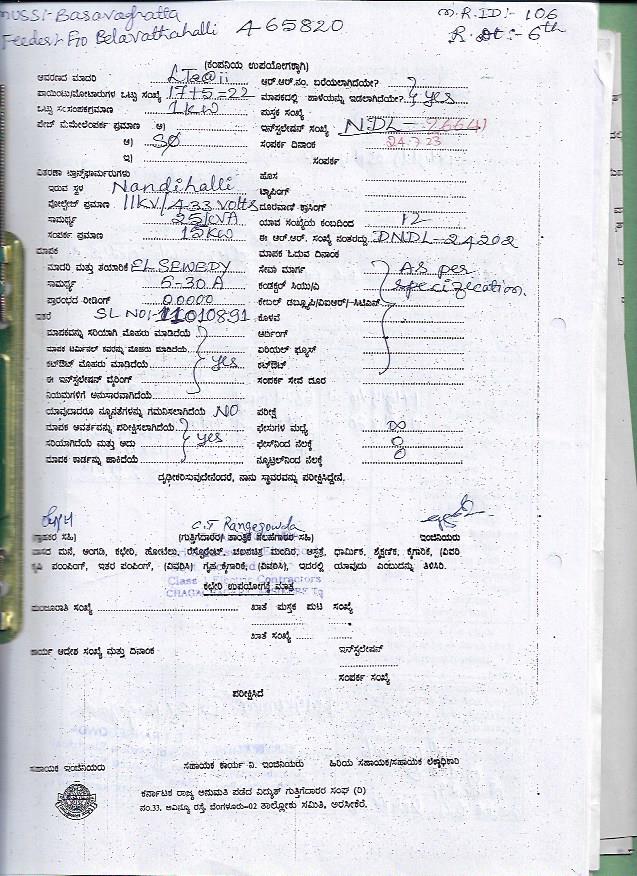 MUSSI- Basavaghatta A-65820 M.R.ID:- 106
Feeder:- F10 Belavathahalli R. Dt :- 6th
(ಕಂಪನಿಯ ಉಪಯೋಗಕ್ಕಾಗಿ)
ಆವರಣದ ಮಾದರಿ LT2@ii ಆರ್.ಆರ್.ನಂ. ಬರೆಯಲಾಗಿದೆಯೇ?
ಪಾಯಿಂಟು/ಮೋಟಾರುಗಳ ಒಟ್ಟು ಸಂಖ್ಯೆ 17+5=22 ಮಾಪಕದಲ್ಲಿ ಹಾಳೆಯನ್ನು ಇಡಲಾಗಿದೆಯೇ? yes
ಒಟ್ಟು ಸಂಪರ್ಕಪ್ರಮಾಣ 1KW ಪುಸ್ತಕ ಸಂಖ್ಯೆ
ಅ) ಇನ್‌ಸ್ಟಲೇಷನ್ ಸಂಖ್ಯೆ NDL-
ಆ) SØ ಸಂಪರ್ಕ ದಿನಾಂಕ 24.7.23
ಇ) ಸಂಪರ್ಕ
ವಿತರಣಾ ಟ್ರಾನ್ಸ್‌ಫಾರ್ಮರುಗಳು ಹೊಸ
ಇರುವ ಸ್ಥಳ Nandihalli ಟ್ಯಾಪಿಂಗ್
ವೋಲ್ಟೇಜ್ ಪ್ರಮಾಣ 11KV/433 volts ದೂರವಾಣಿ ಕ್ರಾಸಿಂಗ್
ಸಾಮರ್ಥ್ಯ 25KVA ಯಾವ ಸಂಖ್ಯೆಯ ಕಂಬದಿಂದ 12
ಸಂಪರ್ಕ ಪ್ರಮಾಣ 12KW ಈ ಆರ್.ಆರ್. ಸಂಖ್ಯೆ ನಂತರದ್ದು DNDL-24202
ಮಾಪಕ ಮಾಪಕ ಓದುವ ದಿನಾಂಕ
ಮಾದರಿ ಮತ್ತು ತಯಾರಿಕೆ ELSEWEDY ಸೇವಾ ಮಾರ್ಗ As per
ಸಾಮರ್ಥ್ಯ 5-30A ಕಂಡಕ್ಟರ್ specification.
ಪ್ರಾರಂಭದ ರೀಡಿಂಗ್ 00000 ಕೇಬಲ್
ಇತರೆ SL NO:- 11010891 ಕೊಳವೆ
ಮಾಪಕವನ್ನು ಸರಿಯಾಗಿ ಮೊಹರು ಮಾಡಿದೆಯೆ ಅರ್ದಿಂಗ್
ಮಾಪಕ ಟರ್ಮಿನಲ್ ಕವರನ್ನು ಮೊಹರು ಮಾಡಿದೆಯೆ ಏರಿಯಲ್ ಫ್ಯೂಸ್
ಕಟ್‌ಔಟ್ ಮೊಹರು ಮಾಡಿದೆಯೆ yes ಕಟ್‌ಔಟ್
ಈ ಇನ್‌ಸ್ಟಲೇಷನ್ ವೈರಿಂಗ್ ಸಂಪರ್ಕ ಸೇವೆ ದೂರ
ನಿಯಮಗಳಿಗೆ ಅನುಸಾರವಾಗಿದೆಯೆ
ಯಾವುದಾದರೂ ನ್ಯೂನತೆಗಳನ್ನು ಗಮನಿಸಲಾಗಿದೆಯೆ NO ಪರೀಕ್ಷೆ
ಮಾಪಕ ಆವರ್ತವನ್ನು ಪರೀಕ್ಷಿಸಲಾಗಿದೆಯೆ ಫೇಸುಗಳ ಮಧ್ಯೆ ∞
ಸರಿಯಾಗಿದೆಯೆ ಮತ್ತು ಅದು yes ಫೇಸ್‌ನಿಂದ ನೆಲಕ್ಕೆ
ಮಾಪಕ ಕಾರ್ಡನ್ನು ಹಾಕಿದೆಯೆ ನ್ಯೂಟ್ರಲ್‌ನಿಂದ ನೆಲಕ್ಕೆ
ದೃಢೀಕರಿಸುವುದೇನೆಂದರೆ, ನಾನು ಸ್ಥಾವರವನ್ನು ಪರೀಕ್ಷಿಸಿದ್ದೇನೆ.
C.J Rangegowda
(ಗ್ರಾಹಕರ ಸಹಿ) (ಗುತ್ತಿಗೆದಾರರ/ ತಾಂತ್ರಿಕ ಸಲಹೆಗಾರರ ಸಹಿ) ಇಂಜಿನಿಯರ್
ವಾಸದ ಮನೆ, ಅಂಗಡಿ, ಕಛೇರಿ, ಹೋಟೆಲು, ರೆಸ್ಟೋರೆಂಟ್, ಚಲನಚಿತ್ರ ಮಂದಿರ, ಆಸ್ಪತ್ರೆ, ಧಾರ್ಮಿಕ, ಶೈಕ್ಷಣಿಕ, ಕೈಗಾರಿಕೆ, (ವಿವರಿ
ಕೃಷಿ ಪಂಪಿಂಗ್, ಇತರ ಪಂಪಿಂಗ್, (ವಿವರಿಸಿ) ಗೃಹ ಕೈಗಾರಿಕೆ, (ವಿವರಿಸಿ), ಇದರಲ್ಲಿ ಯಾವುದು ಎಂಬುದನ್ನು ತಿಳಿಸಿರಿ.
Class 1 Electr Contractors
ಕಛೇರಿ ಉಪಯೋಗಕ್ಕೆ ಮಾತ್ರ
ಮಂಜೂರಾತಿ ಸಂಖ್ಯೆ ಖಾತೆ ಪುಸ್ತಕ ಪುಟ ಸಂಖ್ಯೆ
ಖಾತೆ ಸಂಖ್ಯೆ
ಕಾರ್ಯ ಆದೇಶ ಸಂಖ್ಯೆ ಮತ್ತು ದಿನಾಂಕ ಇನ್‌ಸ್ಟಲೇಷನ್
ಸಂಪರ್ಕ ಸಂಖ್ಯೆ
ಪರೀಕ್ಷಿಸಿದೆ
ಸಹಾಯಕ ಇಂಜಿನಿಯರು ಸಹಾಯಕ ಕಾರ್ಯ ನಿ. ಇಂಜಿನಿಯರು ಹಿರಿಯ ಸಹಾಯಕ/ಸಹಾಯಕ ಲೆಕ್ಕಾಧಿಕಾರಿ
ಕರ್ನಾಟಕ ರಾಜ್ಯ ಅನುಮತಿ ಪಡೆದ ವಿದ್ಯುತ್ ಗುತ್ತಿಗೆದಾರರ ಸಂಘ (ರಿ)
ನಂ.33, ಅವಿನ್ಯೂ ರಸ್ತೆ, ಬೆಂಗಳೂರು-02 ತಾಲ್ಲೋಕು ಸಮಿತಿ, ಅರಸೀಕೆರೆ.